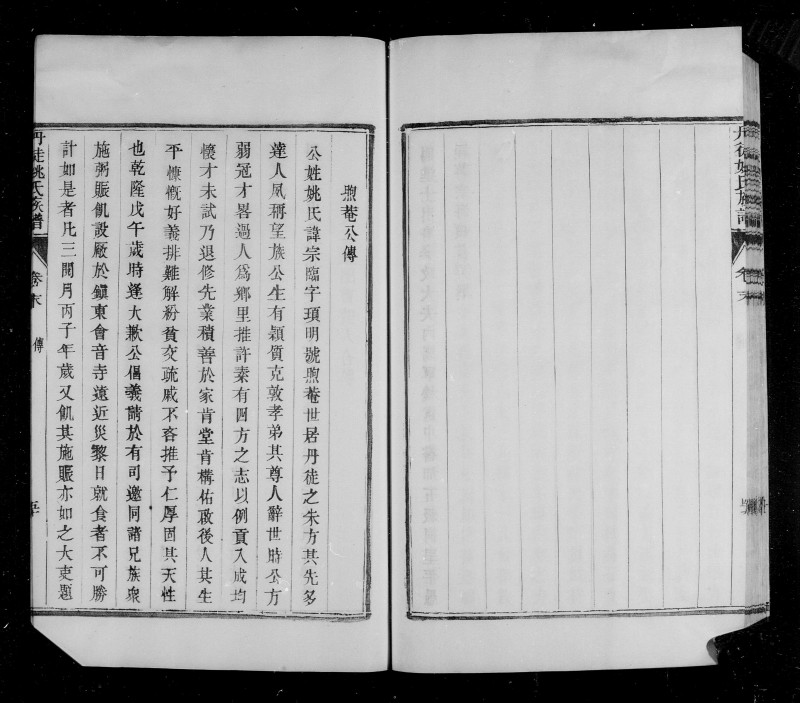 丹徒姚氏族譜
卷末
煦菴公傳
公姓姚氏諱宗臨字頊明號煦菴世居丹徒之朱方其先多
達人夙稱望族公生有穎質克敦孝弟其尊人辭世時公方
弱冠才畧過人爲鄉里推許素有四方之志以例貢入成均
懷才未試乃退修先業積善於家肯堂肯構佑啟後人其生
平慷慨好義排難解紛貧交疏戚不吝推予仁厚固其天性
也乾隆戊午歲時逢大歉公倡義請於有司邀同諸兄族衆
施粥賑飢設厰於鎭東會音寺遠近災黎日就食者不可勝
計如是者凡三閱月丙子年歲又飢其施賑亦如之大吏題
丹徒姚氏族譜
卷末
傳